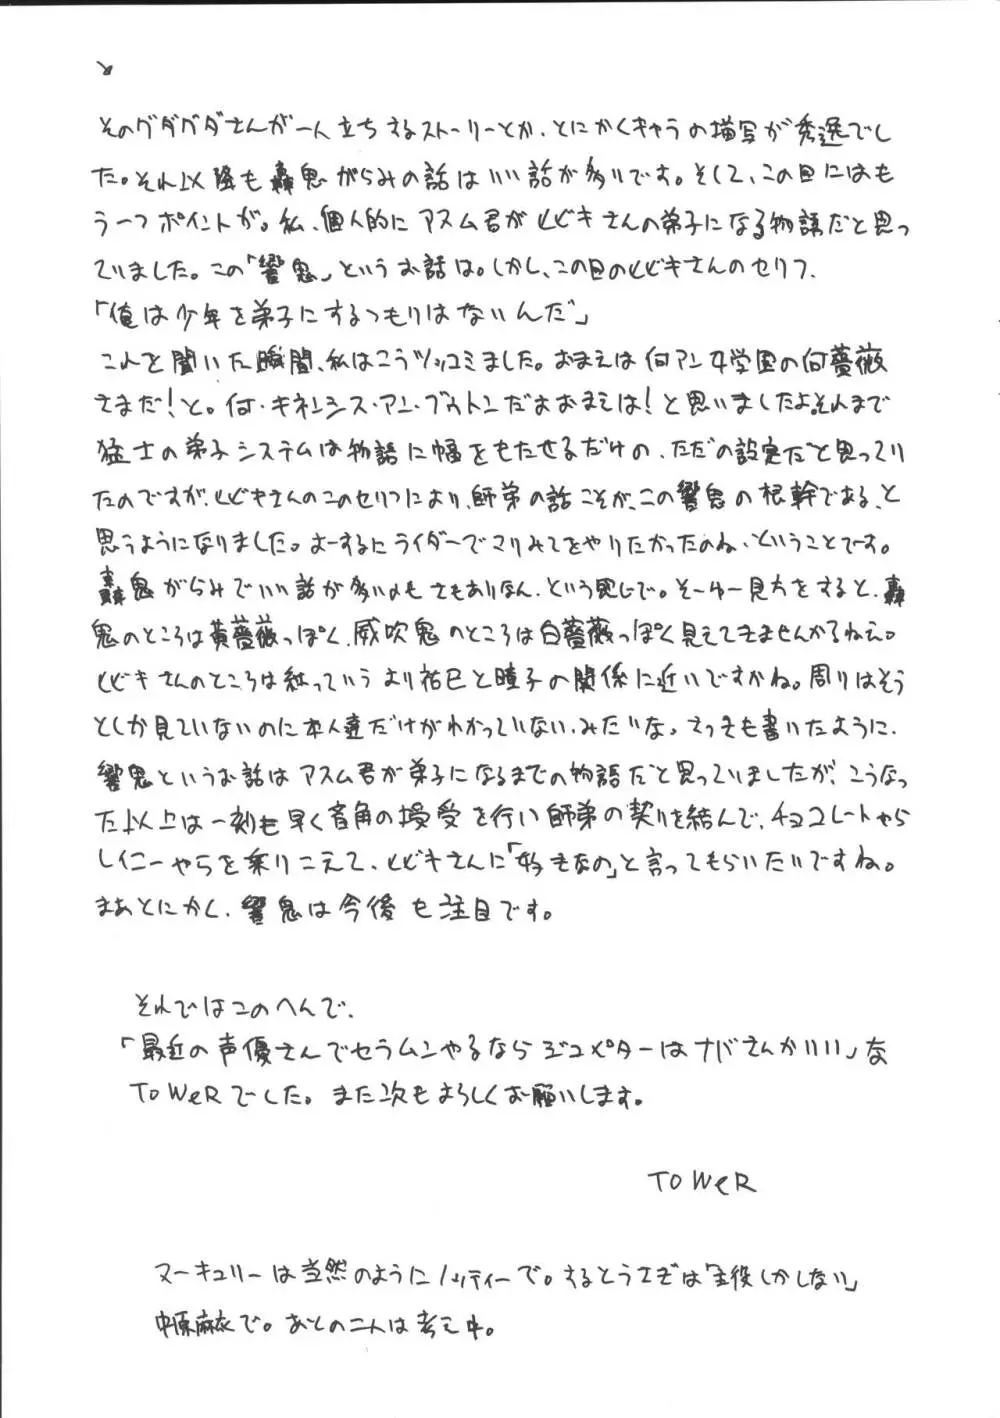 そのグダグダさんが一人立ちするストーリーとか、とにかくキャラの描写が秀逸でし
た。それ以降も轟鬼がらみの話はいい話が多いです。そして、この回にはも
う一つポイントが。私、個人的にアスム君がヒビキさんの弟子になる物語だと思っ
ていました。この「響鬼」というお話は。しかし、この回のヒビキさんのセリフ、
「俺は少年を弟子にするつもりはないんだ」
これを聞いた瞬間、私はこうツッコミました。おまえは何アン女学園の何薔薇
さまだ!と。何・キネンシス・アン・ブゥトンだよおまえは!と思いましたよ。それまで
猛士の弟子システムは物語に幅をもたせるだけの、ただの設定だと思ってい
たのですが、ヒビキさんのこのセリフにより、師弟の話こそが、この響鬼の根幹である、と
思うようになりました。よーするにライダーでマリみてをやりたかったのね、ということです。
轟鬼がらみでいい話が多いのもさもありなん、という感じで。そーゆー見方をすると、轟
鬼のところは黄薔薇っぽく、威吹鬼のところは白薔薇っぽく見えてきませんかねえ。
ヒビキさんのところは紅っていうより祐巳と瞳子の関係に近いですかね。周りはそう
としか見ていないのに本人達だけがわかっていない、みたいな。さっきも書いたように、
響鬼というお話はアスム君が弟子になるまでの物語だと思っていましたが、こうなっ
た以上は一刻も早く音角の授受を行い師弟の契りを結んで、チョコレートやら
レイニーやらを乗りこえて、ヒビキさんに「妹なの」と言ってもらいたいですね。
まあとにかく、響鬼は今後も注目です。
それではこのへんで、
「最近の声優さんでセラムンやるならジュピターはナバさんがいい」な
TOWeRでした。また次もよろしくお願いします。
TOWeR
マーキュリーは当然のようにノッティーで。するとうさぎは「主役しかしない」
中原麻衣で。あとの二人は考え中。